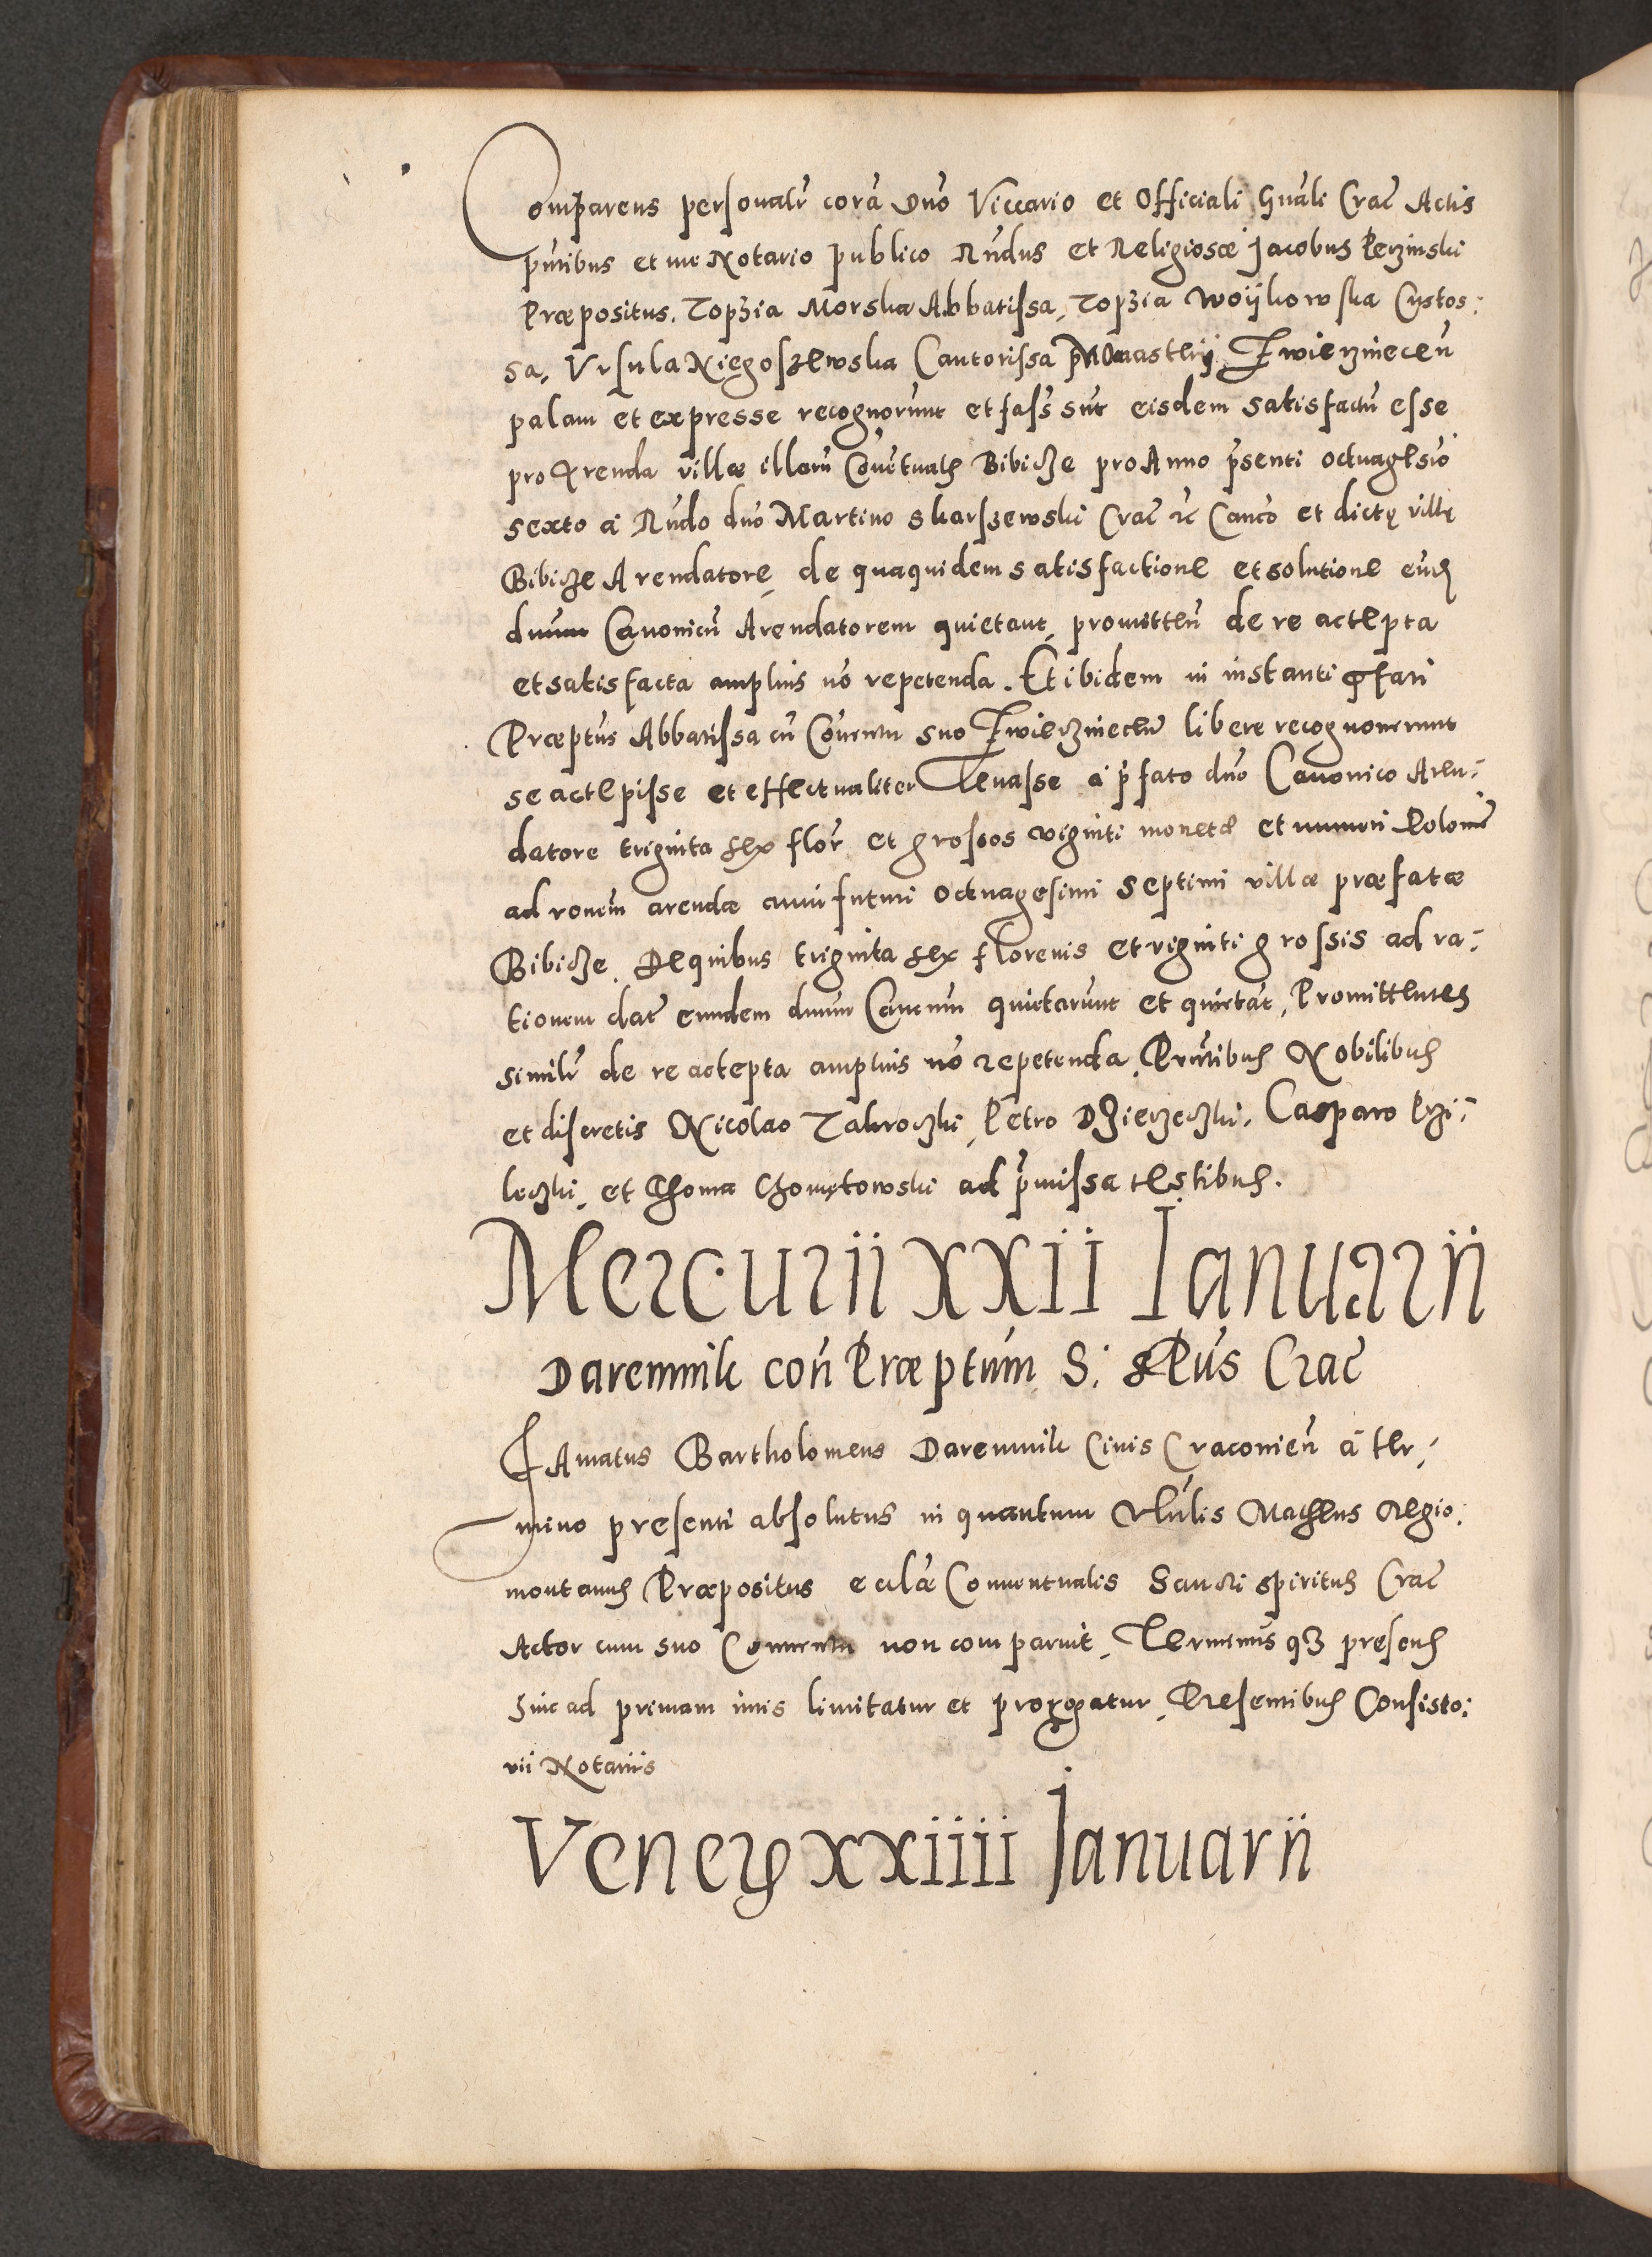 Comparens personalr̃ corã Dno Viccario et Officiali Gnãli Crac̃ Actis
pñtibus et me Notario publico Rñdus et Religiosæ Jacobus Perzinski
Præpositus. Topzia Morska Abbatissa, Topzia Woijkowska Custos:
sa, Vrsula Niegoszewska Cantorissa Monasterij Zwierzinecen̄
palam et expresse recognorunt et fassĩ sũt eisdem satisfactũ esse
pro Arenda villæ illarũ Cõuẽtualis Bibicze pro Anno p̃senti octuagesiõ
sexto à Rñdo dno Martino Skarszewski Crac̃ zc̃ Canco et dictę villę
Bibicze Arendatore, de quaquidem satisfactione et solutione eũd
dnum Canonicũ Arendatorem quietant, promitten̄ de re accepta
et satisfacta amplius nõ repetenda. Et ibidem in instanti p̃fati
Præptus Abbatissa cũ Cõuentu suo Zwierzinecen̄ libere recognouerunt
se accepisse et effectualiter leuasse à p̃fato dno Canonico Aren:
datore triginta sex flor̃ et grossos viginti monetæ et numeri Polonic̃
ad ronem arendæ anni futuri octuagesimi septimi villæ præfatæ
Bibicze. De quibus triginta sex florenis et viginti grossis ad ra:
tionem dat̃ eundem dnum Cancum quietarunt et quietãt, Promittentes
similr̃ de re accepta amplius nõ repetenda, Prñtibus Nobilibus
et discretis Nicolao Zakroczki, Petro Dzierzeczki, Casparo Przi:
leczki, et Thoma Chomętowski ad p̃missa testibus.
Mercurii xxii Ianuarii
Daremnik con̄ Præptum S: SPũs Crac̃
Citatus Bartholomeus Daremnik Ciuis Cracouien̄ à ter:
mino presenti absolutus in quantum Vñlis Matheus Regio:
montanus Præpositus ecclæ Conuentualis Sancti Spiritus Crac̃
Actor cum suo Conuentu non comparuit, Terminus q3 presens
hinc ad primam iuris limitatur et prorogatur, Presentibus Consisto:
rii Notariis
Veneris xxiiii Ianuarii